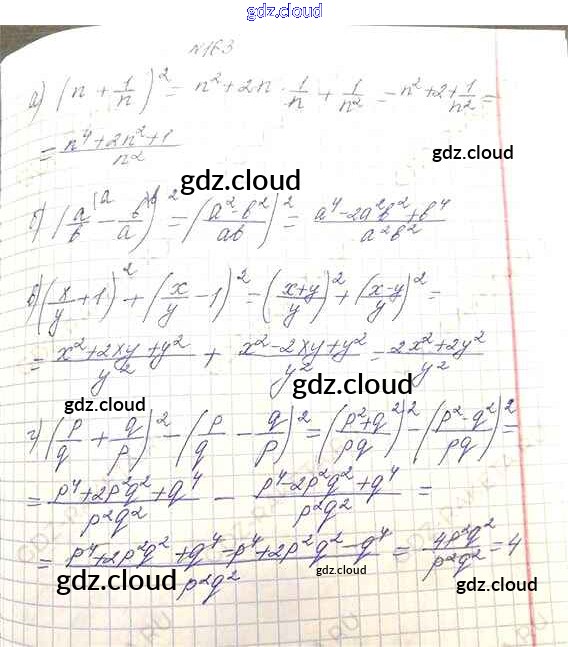 gdz.cloud
№163
а) (n + 1/n)² = n² + 2n · 1/n + 1/n² = n² + 2 + 1/n² =
= (n⁴ + 2n² + 1)/n²
gdz.cloud
б) (a/b \a − b/a \b)² = ((a² − b²)/ab)² = (a⁴ − 2a²b² + b⁴)/a²b²
gdz.cloud
в) (x/y + 1)² + (x/y − 1)² = ((x+y)/y)² + ((x−y)/y)² =
= (x² + 2xy + y²)/y² + (x² − 2xy + y²)/y² = (2x² + 2y²)/y²
gdz.cloud
gdz.cloud
г) (p/q + q/p)² − (p/q − q/p)² = ((p² + q²)/pq)² − ((p² − q²)/pq)² =
= (p⁴ + 2p²q² + q⁴)/p²q² − (p⁴ − 2p²q² + q⁴)/p²q² =
= (p⁴ + 2p²q² + q⁴ − p⁴ + 2p²q² − q⁴)/p²q² = 4p²q²/p²q² = 4
gdz.cloud
gdz.cloud
gdz.cloud